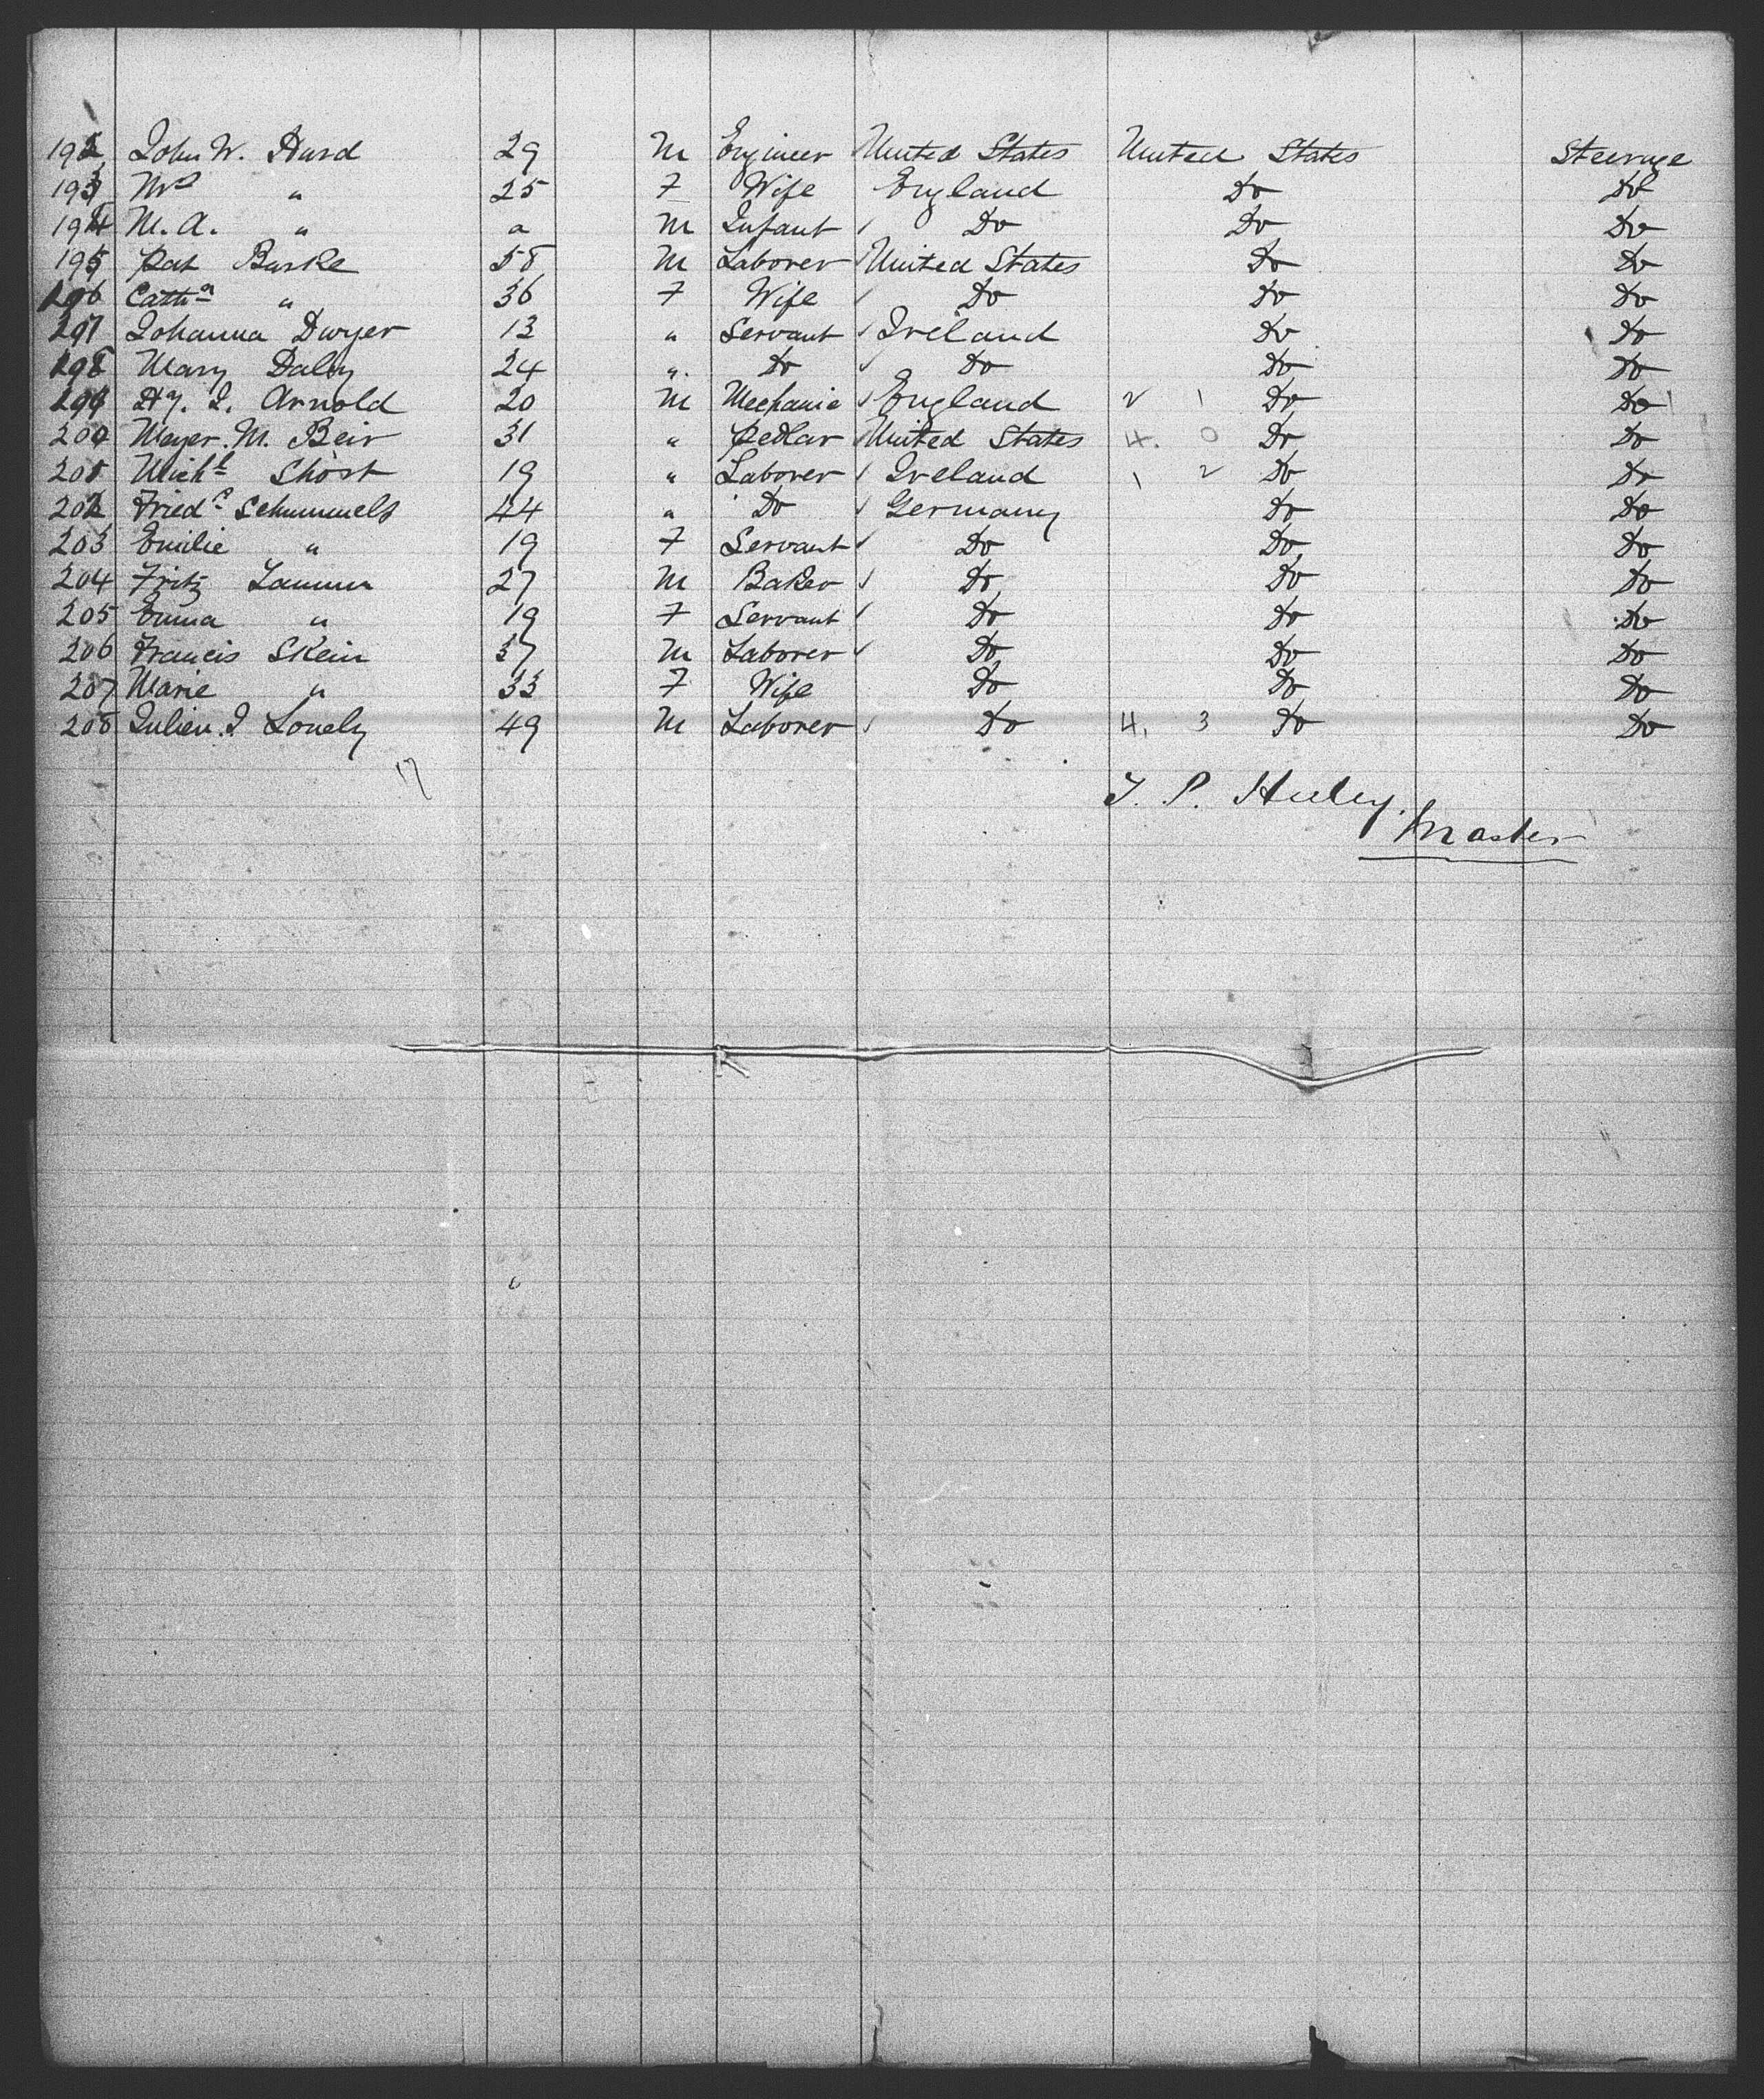 192 John W. Hurd 29 M Engineer United States United States Steerage
193 Mrs " 25 F Wife England Do Do
194 M. A. " a M Infant Do Do Do
195 Pat Burke 58 M Laborer United States Do Do
196 Catha " 36 F Wife Do Do Do
197 Johanna Dwyer 13 " Servant Ireland Do Do
198 Mary Daly 24 " Do Do Do Do
199 Hy. J. Arnold 20 M Mechanic England 2 1 Do Do
200 Meyer. M. Beir 31 " Pedlar United States 4. 0 Do Do
201 Michl Short 19 " Laborer Ireland 1 2 Do Do
202 Friedc Schummels 44 " Do Germany Do Do
203 Emilie " 19 F Servant Do Do Do
204 Fritz Lamm 27 M Baker Do Do Do
205 Emma " 19 F Servant Do Do Do
206 Francis Skein 37 M Laborer Do Do Do
207 Marie " 33 F Wife Do Do Do
208 Julien. J Lonely 49 M Laborer Do 4. 3 Do Do
17
T. P. Heeley.
Master